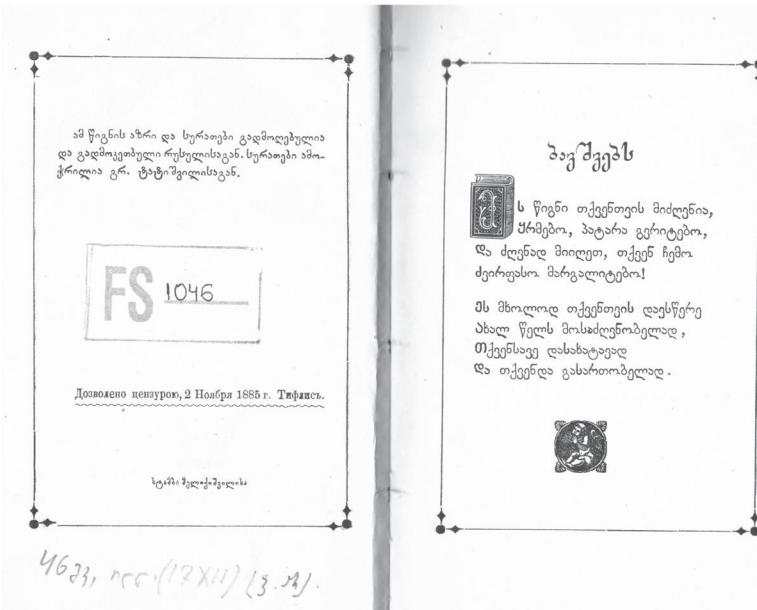 ამ წიგნის აზრი და სურათები გადმოღებულია
და გადმოკეთბული რუსულისაგან. სურათები ამო-
ჭრილია გრ. ტატიშვილისაგან.
FS 1046
Дозволено цензурою, 2 Ноября 1885 г. Тифлисъ.
სტამბა მელიქიშვილისა
46 გვ.
(17X11)
ბავშვებს
ეს წიგნი თქვენთვის მიძღვნია,
ყრმებო, პატარა გვრიტებო,
და ძღვნად მიიღეთ, თქვენ ჩემო
ძვირფასო მარგალიტებო!
ეს მხოლოდ თქვენთვის დავსწერე
ახალ წელს მოსაძღვნობელად,
თქვენსავე დასახატავად
და თქვენდა გასართობელად.